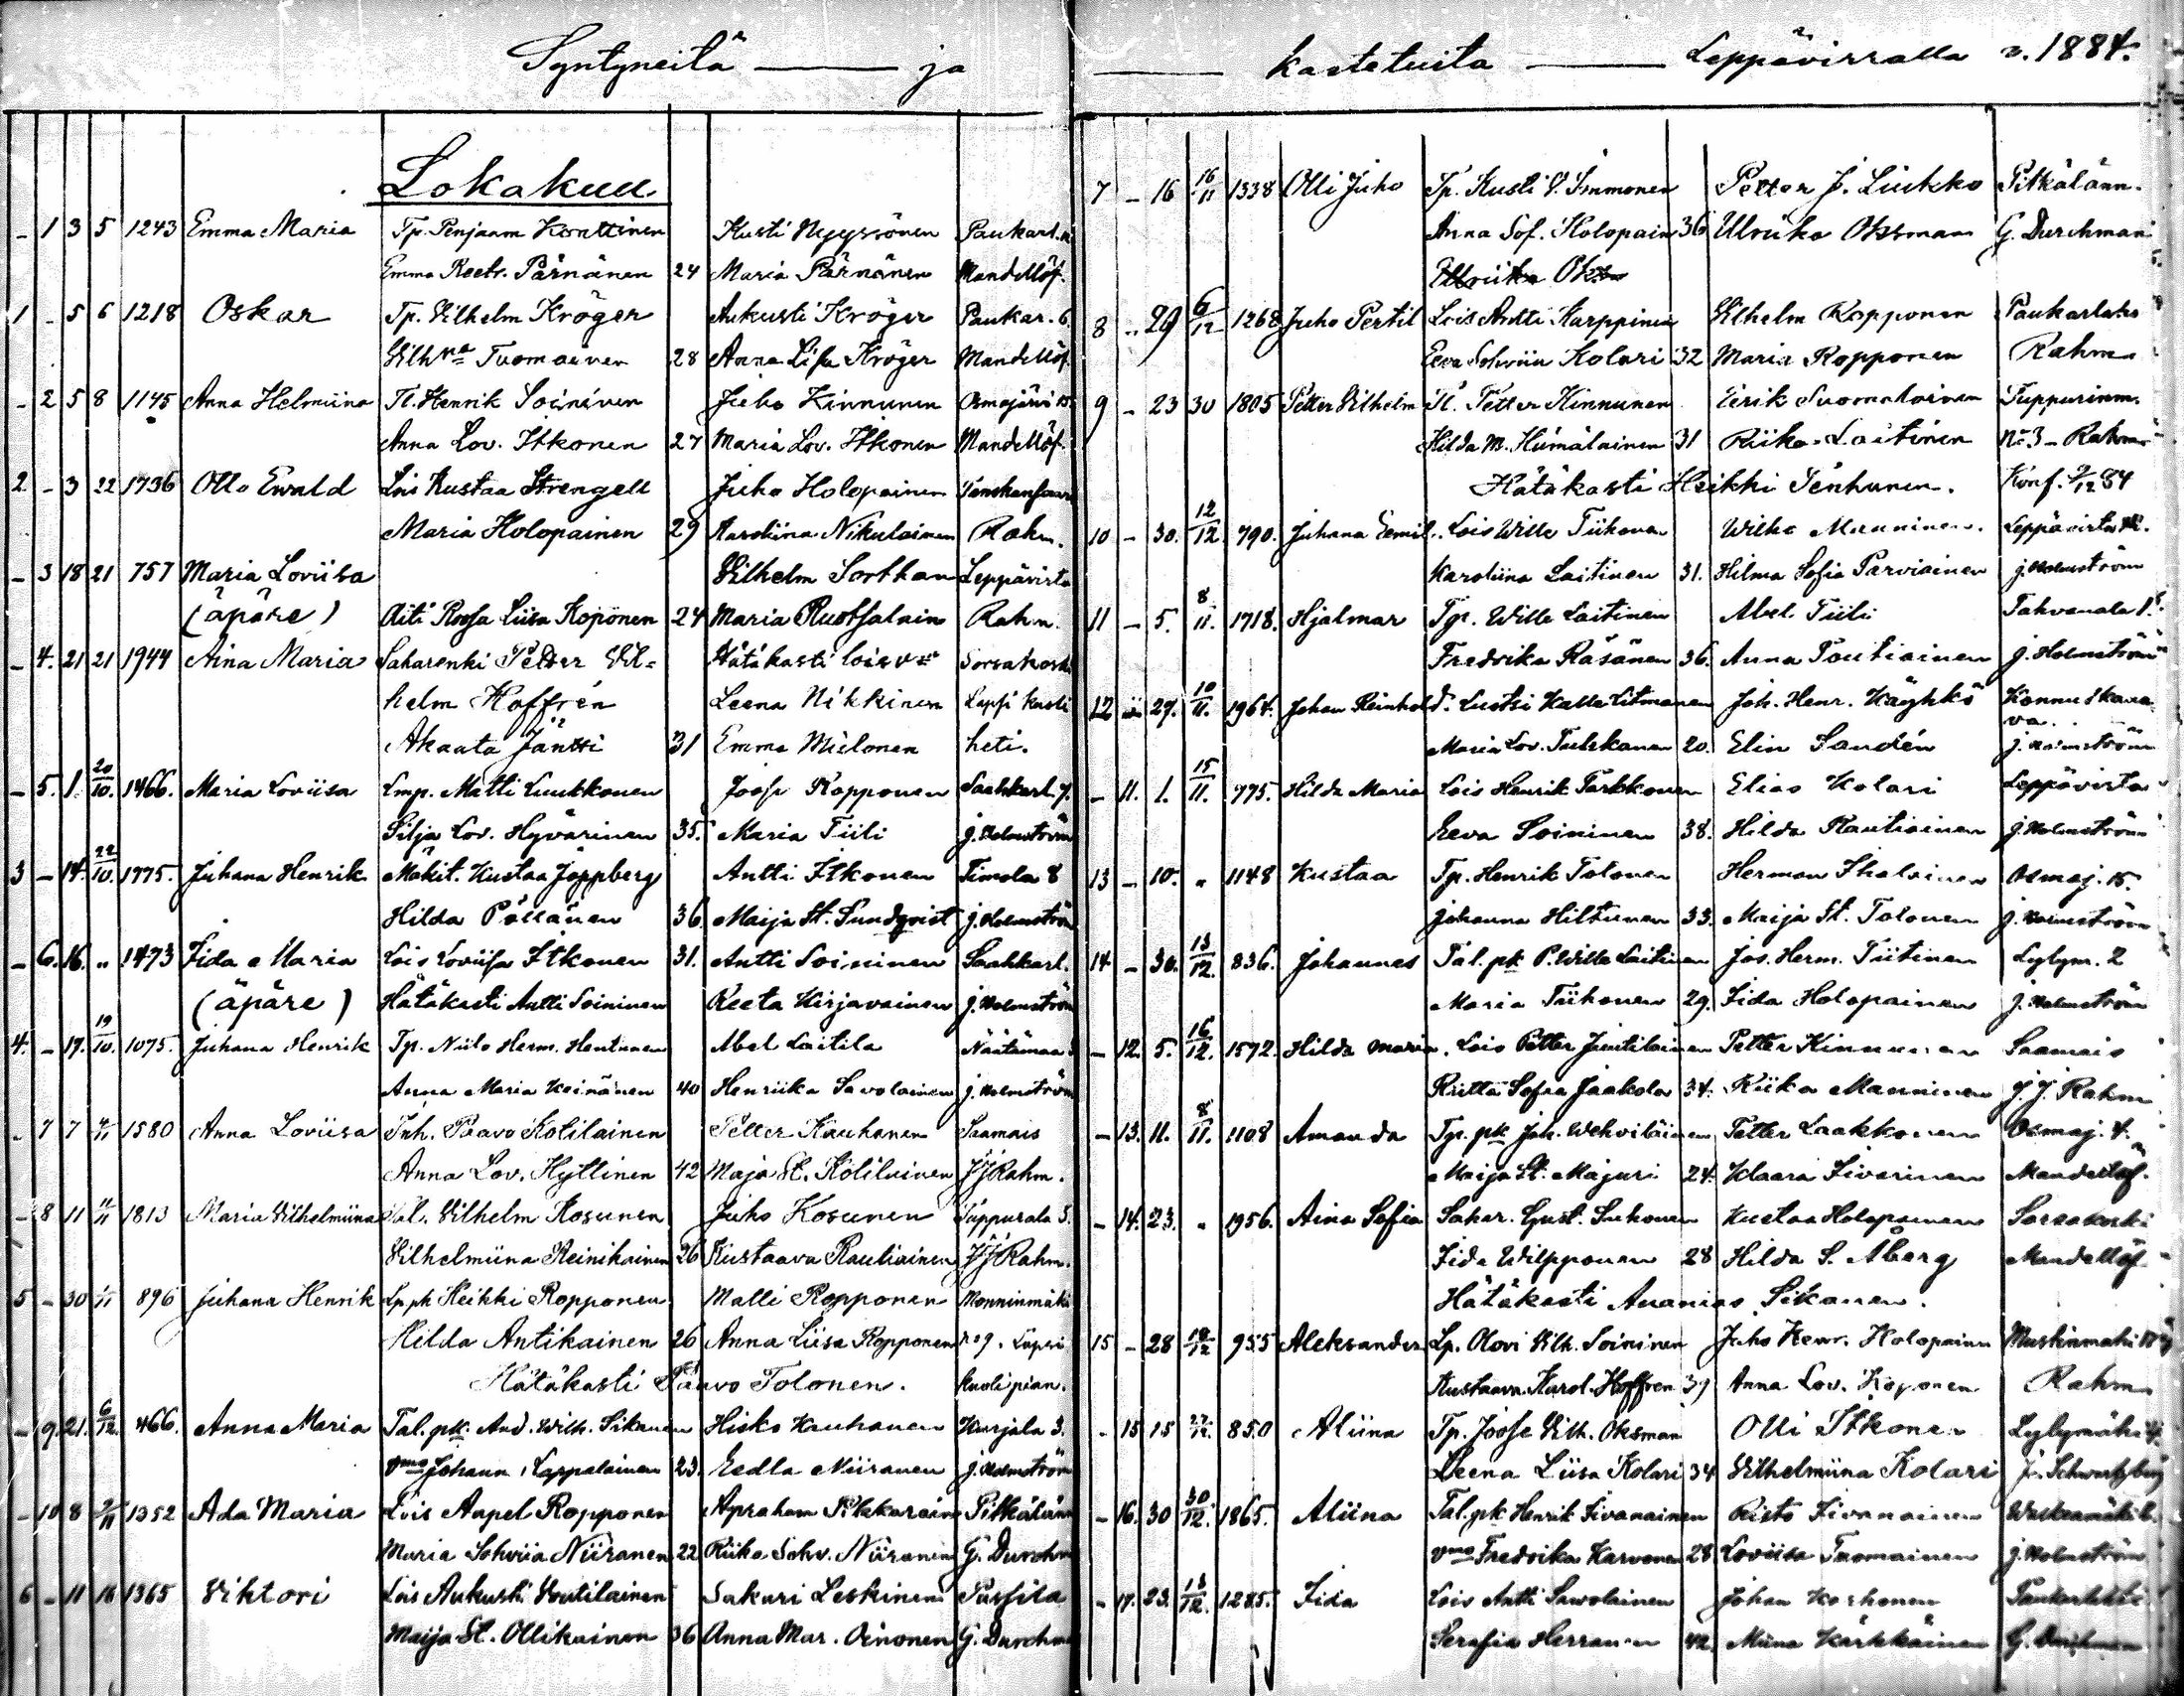 Syntyneitä — ja — kastetuita — Leppävirralla v. 1884.
Lokakuu
- 1 3 5 1243 Emma Maria Tp. Penjaam Konttinen Kusti Nyyssönen Paukarl.
Emma Reeta Pärnänen 24 Maria Pärnänen Mandellöf.
1 - 5 6 1218 Oskar Tp. Vilhelm Kröger Aukusti Kröger Paukar. 6.
Vilhna Tuomainen 28 Anna Lisa Kröger Mandellöf.
- 2 5 8 1145 Anna Helmiina Tl. Henrik Soininen Juho Kinnunen Osmajärvi 15.
Anna Lov. Itkonen 27 Maria Lov. Itkonen Mandellöf.
2 - 3 22 1736 Otto Ewald Lois Kustaa Strengell Juho Holopainen
Maria Holopainen 29 Karoliina Nikulainen Rahm.
- 3 18 21 757 Maria Loviisa Vilhelm Sorthan Leppävirta
(äpäre) Äiti Roosa Liisa Koponen 24 Maria Ruotsalain Rahm.
- 4. 21 21 1944 Aina Maria Saharenki Petter Vil= Hätäkasti Sorsakoski
helm Hoffrén Leena Nikkinen Lapsi kuoli
Akaata Jäntti 31 Emma Mielonen heti.
- 5. 1. 20/10. 1466. Maria Loviisa Lmp. Matti Luukkonen Joose Ropponen Saahkarl. 7.
Silja Lov. Hyvärinen 35. Maria Tiili J. Holmström
3 - 14. 22/10. 1775. Juhana Henrik Mäkit. Kustaa Joppberg Antti Itkonen Timola 8
Hilda Pöllänen 36. Maija St. Sundqvist J. Holmström
- 6. 16. " 1473 Iida Maria Lois Loviisa Itkonen 31. Antti Soininen Saahkarl.
(äpäre) Hätäkasti Antti Soininen Reeta Kirjavainen J. Holmström
4. - 17. 19/10. 1075. Juhana Henrik Tp. Niilo Herm. Hentunen Abel Laitila Näätämaa
Anna Maria Keinänen 40 Henriika Savolainen J. Holmström
- 7 7 1580 Anna Loviisa Inh. Paavo Kotilainen Petter Kauhanen Saamais
Anna Lov. Hyttinen 42 Maja St. Kotilainen JJ Rahm.
- 8 11 1813 Maria Vilhelmiina Tal. Vilhelm Kosunen Juho Kosunen Tuppurala 3.
Vilhelmiina Reinikainen 26 Kustaava Rautiainen JJ Rahm.
5 - 30 896 Juhana Henrik Lp. pk Heikki Ropponen Matti Ropponen Monninmäki
Hilda Antikainen 26 Anna Liisa Ropponen No 9. Lapsi
Hätäkasti Paavo Tolonen. kuoli pian.
- 9. 21. 6/12. 466. Anna Maria Tal. pk. And. Wilh. Sikanen Hisko Kauhanen Kurjala 3.
vmo Johann. Lappalainen 23. Eedla Niiranen J. Holmström
- 10 8 1352 Ada Maria Lois Aapel Ropponen Apraham Pitkälänn
Maria Sohviia Niiranen 22 Riika Sohv. Niiranen G. Durchm
6 - 11 16 1365 Viktori Lois Aukusti Voutilainen Sakari Leskinen
Maija St. Ollikainen 36 Anna Mar. Oinonen G. Durchm
7 - 16 16/11 1338 Olli Juho Tp. Kusti V. Immonen Petter J. Liukko Pitkälänn.
Anna Sof. Holopain 36 Ulriika Oksman G. Durchman
Ulriika Oks
8 - 29 6/12 1268 Juho Pertil Lois Antti Karppinen Vilhelm Ropponen Paukarlahti
Eeva Sohviia Kolari 32 Maria Ropponen Rahm
9 - 23 30 1805 Petter Vilhelm Tl. Petter Kinnunen Eerik Suomalainen Tuppurinm.
Hilda M. Hämäläinen 31 Riika Laitinen No 3 - Rahm
Hätäkasti Heikki Tenhunen. Konf. 9/12 84
10 - 30. 12/12 790. Juhana Eemil. Lois Wille Tiihonen Wilho Manninen. Leppävirta
Karoliina Laitinen 31. Hilma Sofia Parviainen J. Holmström
11 - 5. 8/11. 1718. Hjalmar Tp. Wille Laitinen Abel Tiili Tahvanala 1.
Fredrika Räsänen 36. Anna Poutiainen J. Holmström
12 - 27. 10/11. 1964. Johan Reinhold. Luotsi Kalle Litmanen Joh. Henr. Käyhkö Konnuskana
va.
Maria Lov. Tuliskanen 20. Elin Sandén J. Holmström
- 11. 1. 15/11. 775. Hilda Maria Lois Henrik Tarkkonen Elias Kolari Leppävirta
Eeva Soininen 38. Hilda Rautiainen J. Holmström
13 - 10. " 1148 Kustaa Tp. Henrik Tolonen Herman Ihalainen Osmaj. 15.
Johanna Hiltunen 33. Maija St. Tolonen J. Holmström
14 - 30. 13/12. 836. Johannes Tal. pk P. Wille Laitinen Jos. Herm. Tiitinen Lylym. 2
Maria Tiihonen 29. Iida Holopainen J. Holmström
- 12. 5. 16/12. 1572. Hilda Maria. Lois Petter Juntilainen Petter Kinnunen Saamais
Riitta Sofia Jaakola 34. Riika Manninen J. J. Rahm
- 13. 11. 8/11. 1108 Amanda Tp. pk Joh. Wehviläinen Petter Laakkonen Osmaj. 4.
Maija St. Majuri 24. Klaara Iivarinen Mandellöf.
- 14. 23. " 1956. Aina Sofia Sahar. Gust. Suhonen Kustaa Holopainen Sorsakoski
Iida Wilpponen 28 Hilda S. Åberg Mandellöf
Hätäkasti Ananias Sikanen.
15 - 28 955 Aleksander Lp. Olovi Vilh. Soininen Juho Henr. Holopainen Mustinmäki
Kustaava Karol. Hoffren 39 Anna Lov. Koponen Rahm
- 15 15 850 Aliina Tp. Joose Vilh. Oksman Olli Itkonen Lylymäki 4.
Leena Liisa Kolari 34 Vilhelmiina Kolari
- 16. 30 30/12. 1865. Aliina Tal. pk Henrik Iivanainen Risto Iivanainen
vmo Fredrika Karvonen 28 Loviisa Tuomainen J. Holmström
- 17. 23. 13/12. 1285. Iida Lois Antti Sawolainen Johan Korhonen
Serafia Herranen 42. Miina Kärkkäinen G. Durchman